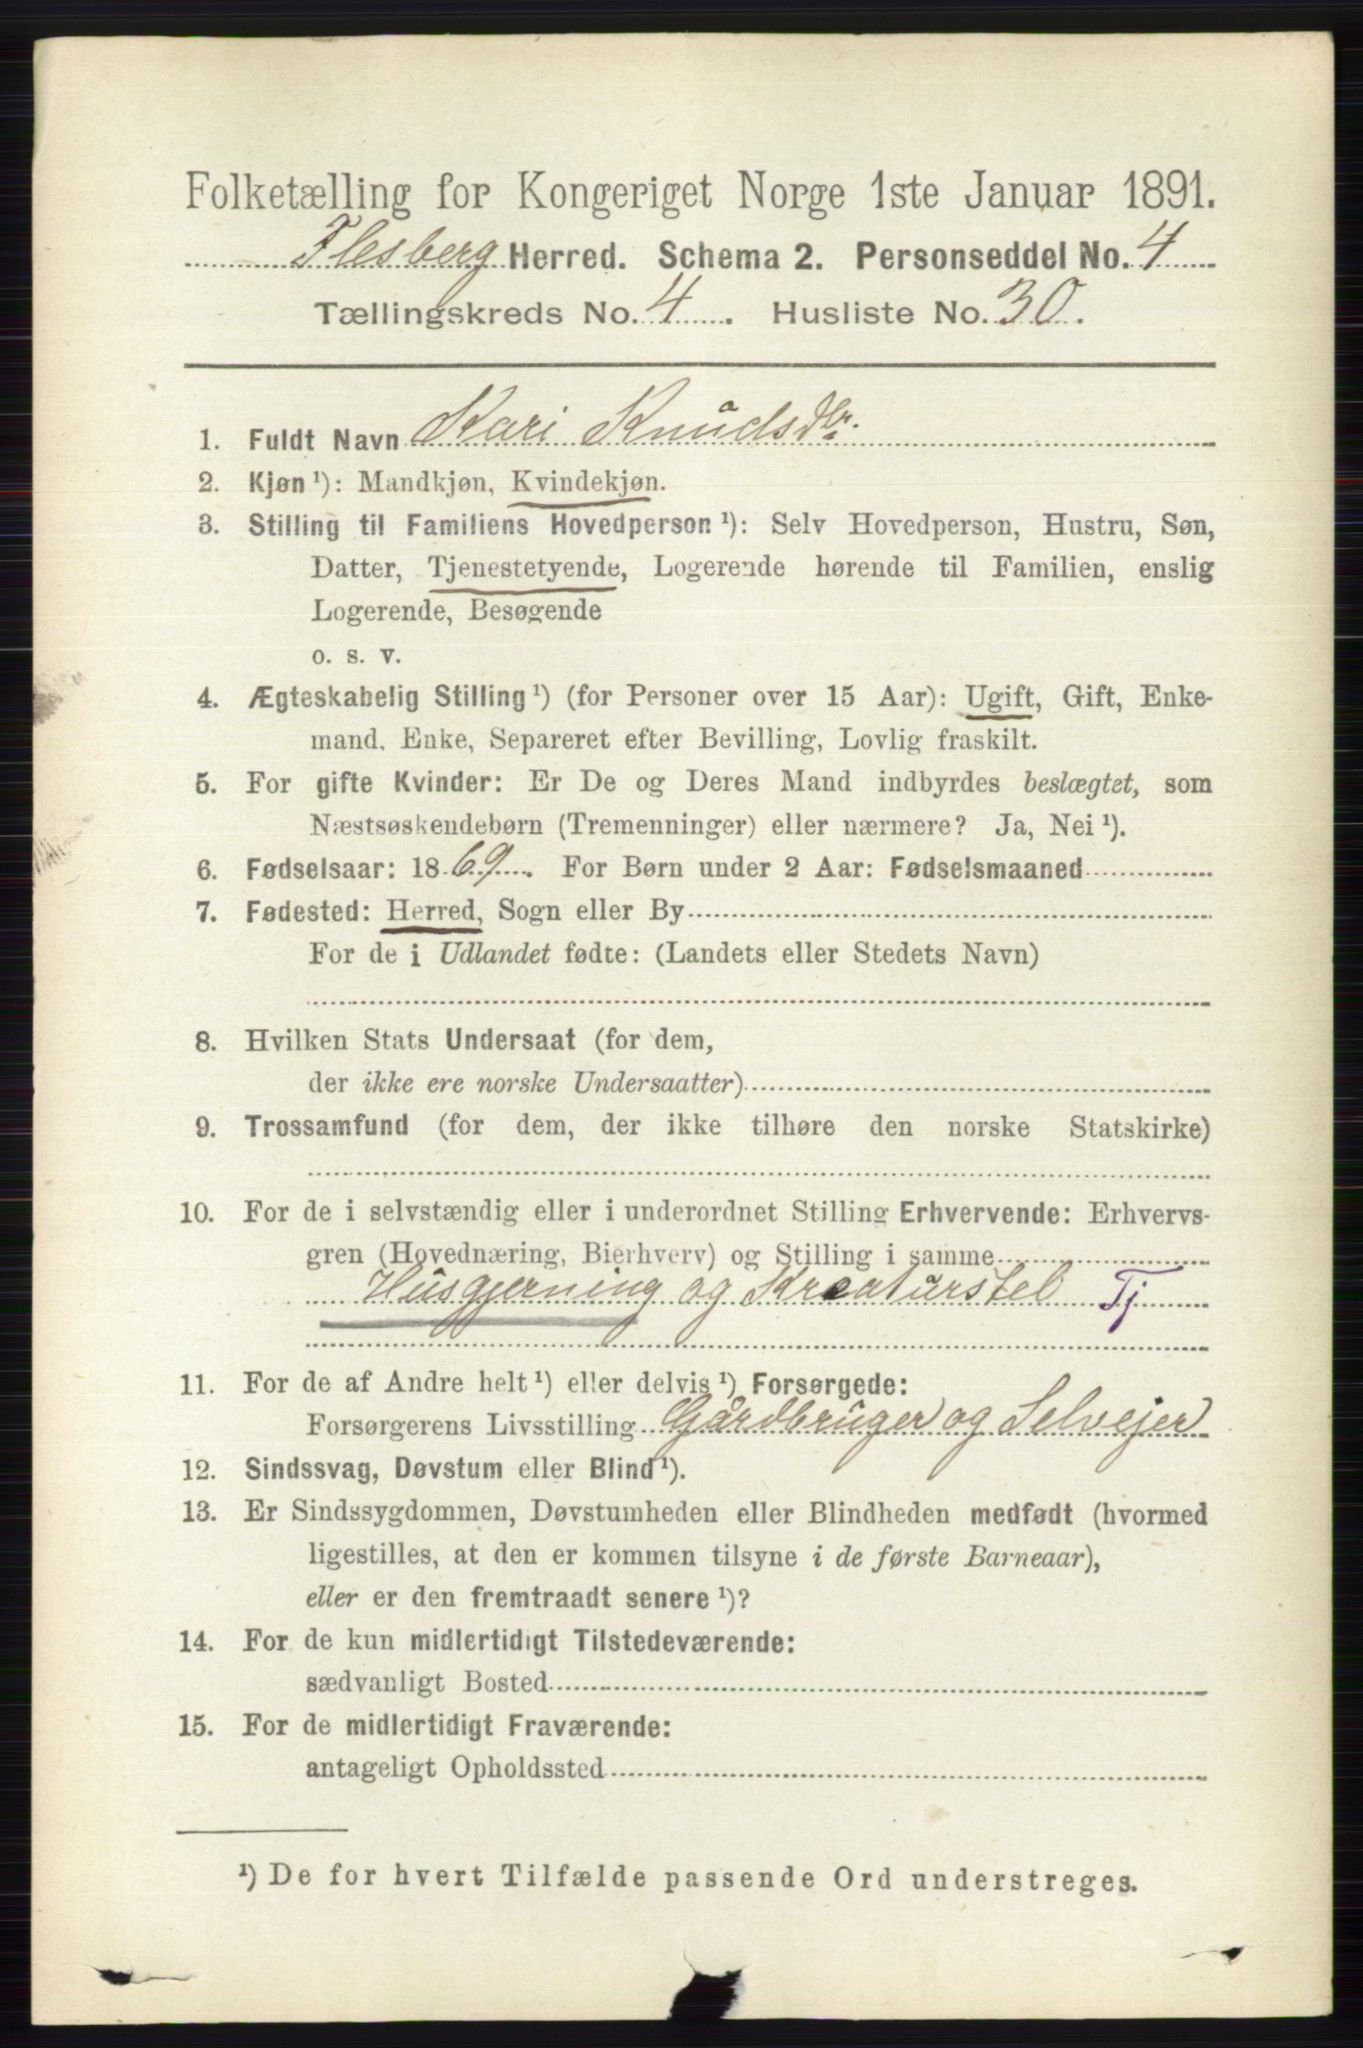 Folketælling for Kongeriget Norge 1ste Januar 1891.
Flesberg Herred. Schema 2. Personseddel No. 4
Tællingskreds No. 4. Husliste No. 30.
1. Fuldt Navn Kari Knudsdtr.
2. Kjøn ¹): Mandkjøn, Kvindekjøn.
3. Stilling til Familiens Hovedperson ¹): Selv Hovedperson, Hustru, Søn,
Datter, Tjenestetyende, Logerende hørende til Familien, enslig
Logerende, Besøgende
o. s. v.
4. Ægteskabelig Stilling ¹) (for Personer over 15 Aar): Ugift, Gift, Enke-
mand, Enke, Separeret efter Bevilling, Lovlig fraskilt.
5. For gifte Kvinder: Er De og Deres Mand indbyrdes beslægtet, som
Næstsøskendebørn (Tremenninger) eller nærmere? Ja, Nei ¹).
6. Fødselsaar: 1869. For Børn under 2 Aar: Fødselsmaaned
7. Fødested: Herred, Sogn eller By
For de i Udlandet fødte: (Landets eller Stedets Navn)
8. Hvilken Stats Undersaat (for dem,
der ikke ere norske Undersaatter)
9. Trossamfund (for dem, der ikke tilhøre den norske Statskirke)
10. For de i selvstændig eller i underordnet Stilling Erhvervende: Erhvervs-
gren (Hovednæring, Bierhverv) og Stilling i samme
Husgjerning og Kreaturstel Tj
11. For de af Andre helt ¹) eller delvis ¹) Forsørgede:
Forsørgerens Livsstilling Gårdbruger og Selvejer
12. Sindssvag, Døvstum eller Blind ¹).
13. Er Sindssygdommen, Døvstumheden eller Blindheden medfødt (hvormed
ligestilles, at den er kommen tilsyne i de første Barneaar),
eller er den fremtraadt senere ¹)?
14. For de kun midlertidigt Tilstedeværende:
sædvanligt Bosted
15. For de midlertidigt Fraværende:
antageligt Opholdssted
¹) De for hvert Tilfælde passende Ord understreges.